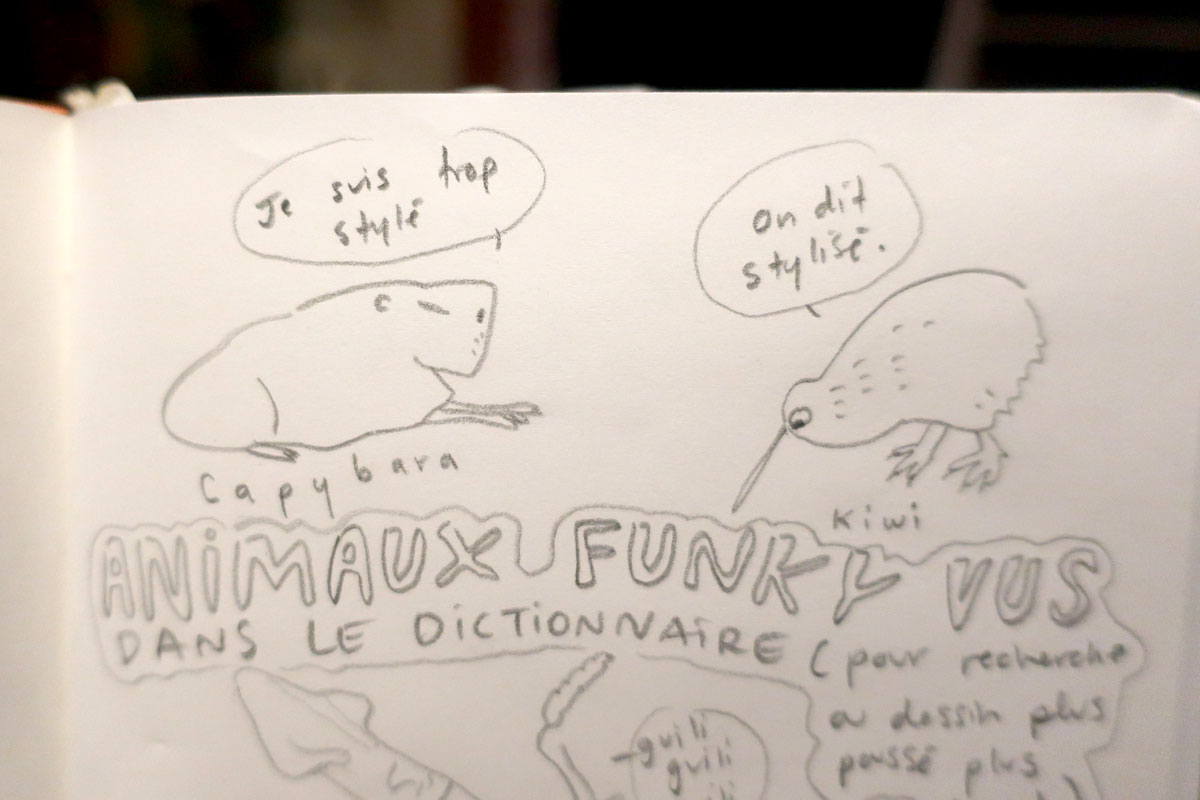 Je suis trop
stylé
On dit
stylisé.
Capybara
Kiwi
ANiMAUX FUNKY VUS
DANS LE DiCTiONNAiRE (pour recherche
ou dessin plus
poussé plus
guili
guili